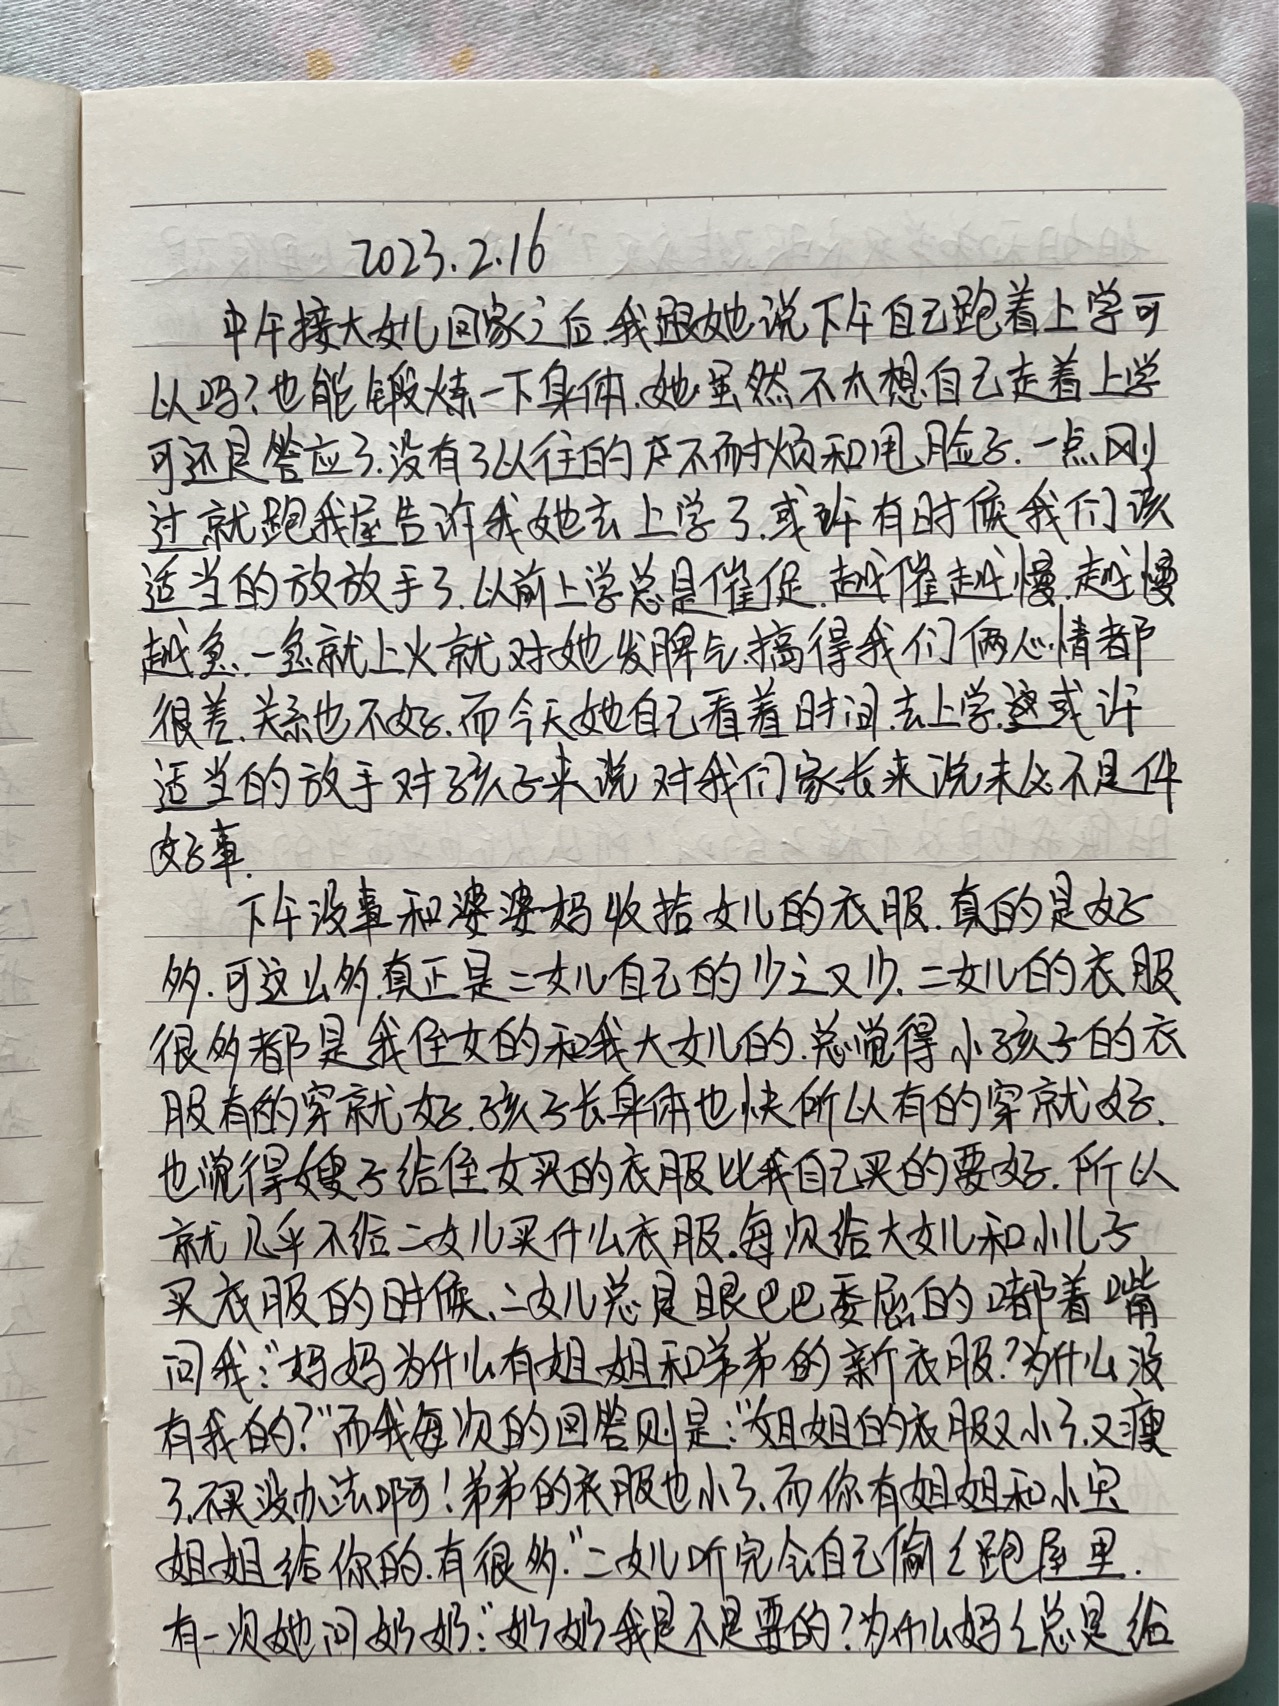 2023.2.16
中午接大女儿回家之后.我跟她说下午自己跑着上学可
以吗?也能锻炼一下身体.她虽然不太想自己走着上学
可还是答应了.没有了以往的不耐烦和甩脸子.一点刚
过就跑我屋告诉我她去上学了.或许有时候我们该
适当的放放手了.以前上学总是催促.越催越慢.越慢
越急.一急就上火就对她发脾气.搞得我们俩心情都
很差.关系也不好.而今天她自己看着时间去上学.或许
适当的放手对孩子来说对我们家长来说未必不是件
好事.
下午没事和婆婆妈收拾女儿的衣服.真的是好
多.可这么多.真正是二女儿自己的少之又少.二女儿的衣服
很多都是我侄女的和我大女儿的.总觉得小孩子的衣
服有的穿就好.孩子长身体也快所以有的穿就好.
也觉得嫂子给侄女买的衣服比我自己买的要好.所以
就几乎不给二女儿买什么衣服.每次给大女儿和小儿子
买衣服的时候.二女儿总是眼巴巴委屈的嘟着嘴
问我:"妈妈为什么有姐姐和弟弟的新衣服?为什么没
有我的?"而我每次的回答则是:"姐姐的衣服又小了.又瘦
了.不买没办法啊!弟弟的衣服也小了.而你有姐姐和小
姐姐给你的.有很多."二女儿听完会自己偷く跑屋里.
有一次她问奶奶:"奶奶我是不是要的?为什么妈く总是给